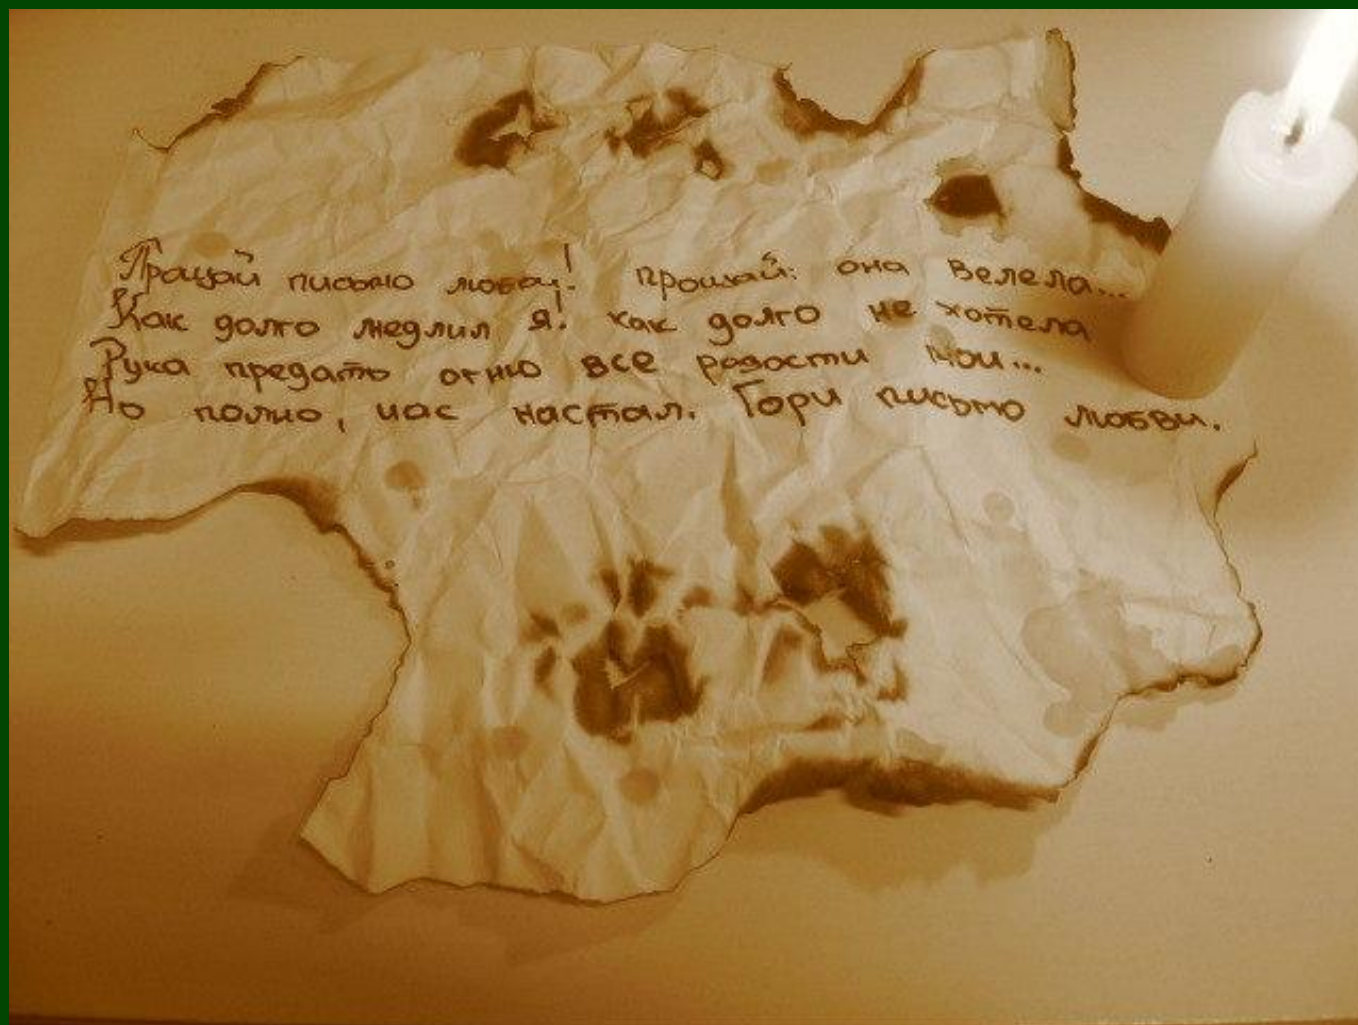 Прощай письмо любви! прощай: она велела...
Как долго медлил я! как долго не хотела
Рука предать огню все радости мои...
Но полно, час настал. Гори письмо любви.